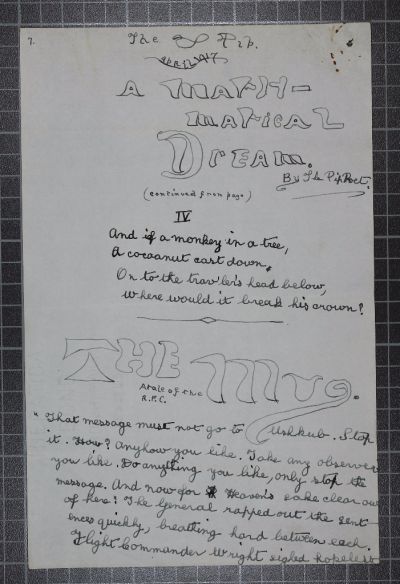 7.
The Pip.
April 1917
A MATH-
MATICAL
DREAM.
By The Pip Poet.
(continued from page)
IV
And if a monkey in a tree,
A cocoanut cast down,
On to the trav'ler's head below,
Where would it break his crown?
THE MUG.
A tale of the
R.F.C.
"That message must not go to Uskub. Stop
it. How? Anyhow you like. Take any observer
you like. Do anything you like, only stop the
message. And now for Heaven's sake clear out
of here! The General rapped out the sent-
ences quickly, breathing hard between each.
Flight Commander Wright sighed hopeless-